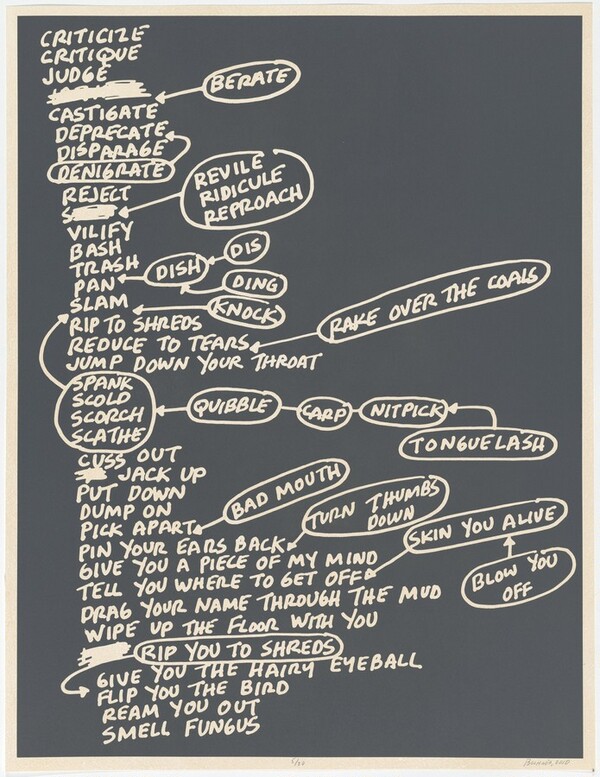 CRITICIZE
CRITIQUE
JUDGE
BERATE
CASTIGATE
DEPRECATE
DISPARAGE
DENIGRATE
REVILE
RIDICULE
REPROACH
REJECT
VILIFY
BASH
TRASH
DIS
DISH
PAN
DING
SLAM
KNOCK
RAKE OVER THE COALS
RIP TO SHREDS
REDUCE TO TEARS
JUMP DOWN YOUR THROAT
SPANK
SCOLD
SCORCH
SCATHE
QUIBBLE
CARP
NITPICK
TONGUELASH
CUSS OUT
JACK UP
PUT DOWN
DUMP ON
PICK APART
BAD MOUTH
TURN THUMBS
DOWN
PIN YOUR EARS BACK
SKIN YOU ALIVE
GIVE YOU A PIECE OF MY MIND
BLOW YOU
OFF
TELL YOU WHERE TO GET OFF
DRAG YOUR NAME THROUGH THE MUD
WIPE UP THE FLOOR WITH YOU
RIP YOU TO SHREDS
GIVE YOU THE HAIRY EYEBALL
FLIP YOU THE BIRD
REAM YOU OUT
SMELL FUNGUS